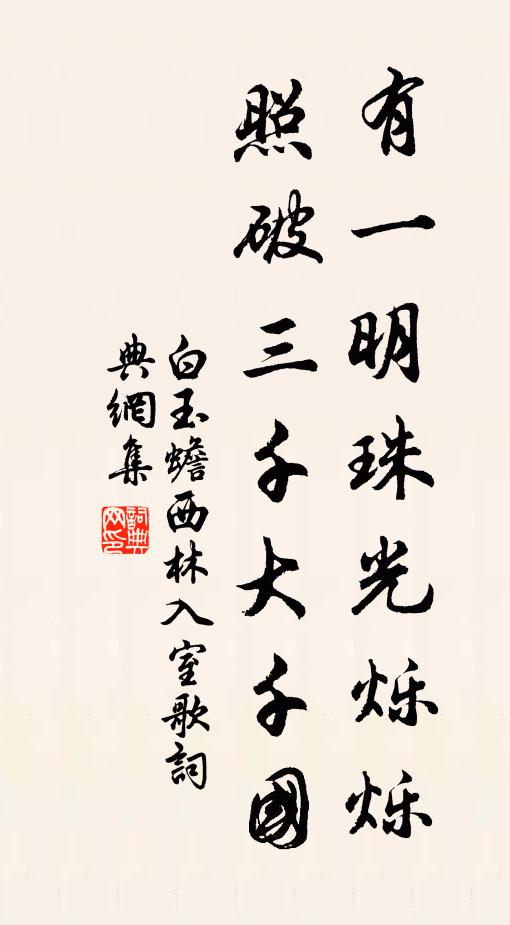 有一明珠光烁烁
照破三千大千國
白玉蟾西林入室歌詞
典網集
詞典
网印